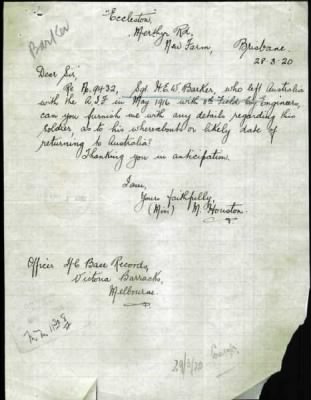 "Eccleston",
Barker
Merthyr Rd,
New Farm,
Brisbane.
28-3-20
Dear Sir,
Re No. 9432, Sgt. H. E. W. Barker, who left Australia
with the A.I.F. in May 1916 with 11th Field Coy Engineers,
can you furnish me with any details regarding this
soldier, as to his whereabouts or likely date of
returning to Australia?
Thanking you in anticipation.
I am,
Yours faithfully,
(Miss) M. Houston.
Officer I/C Base Records,
Victoria Barracks,
Melbourne.
29/3/20